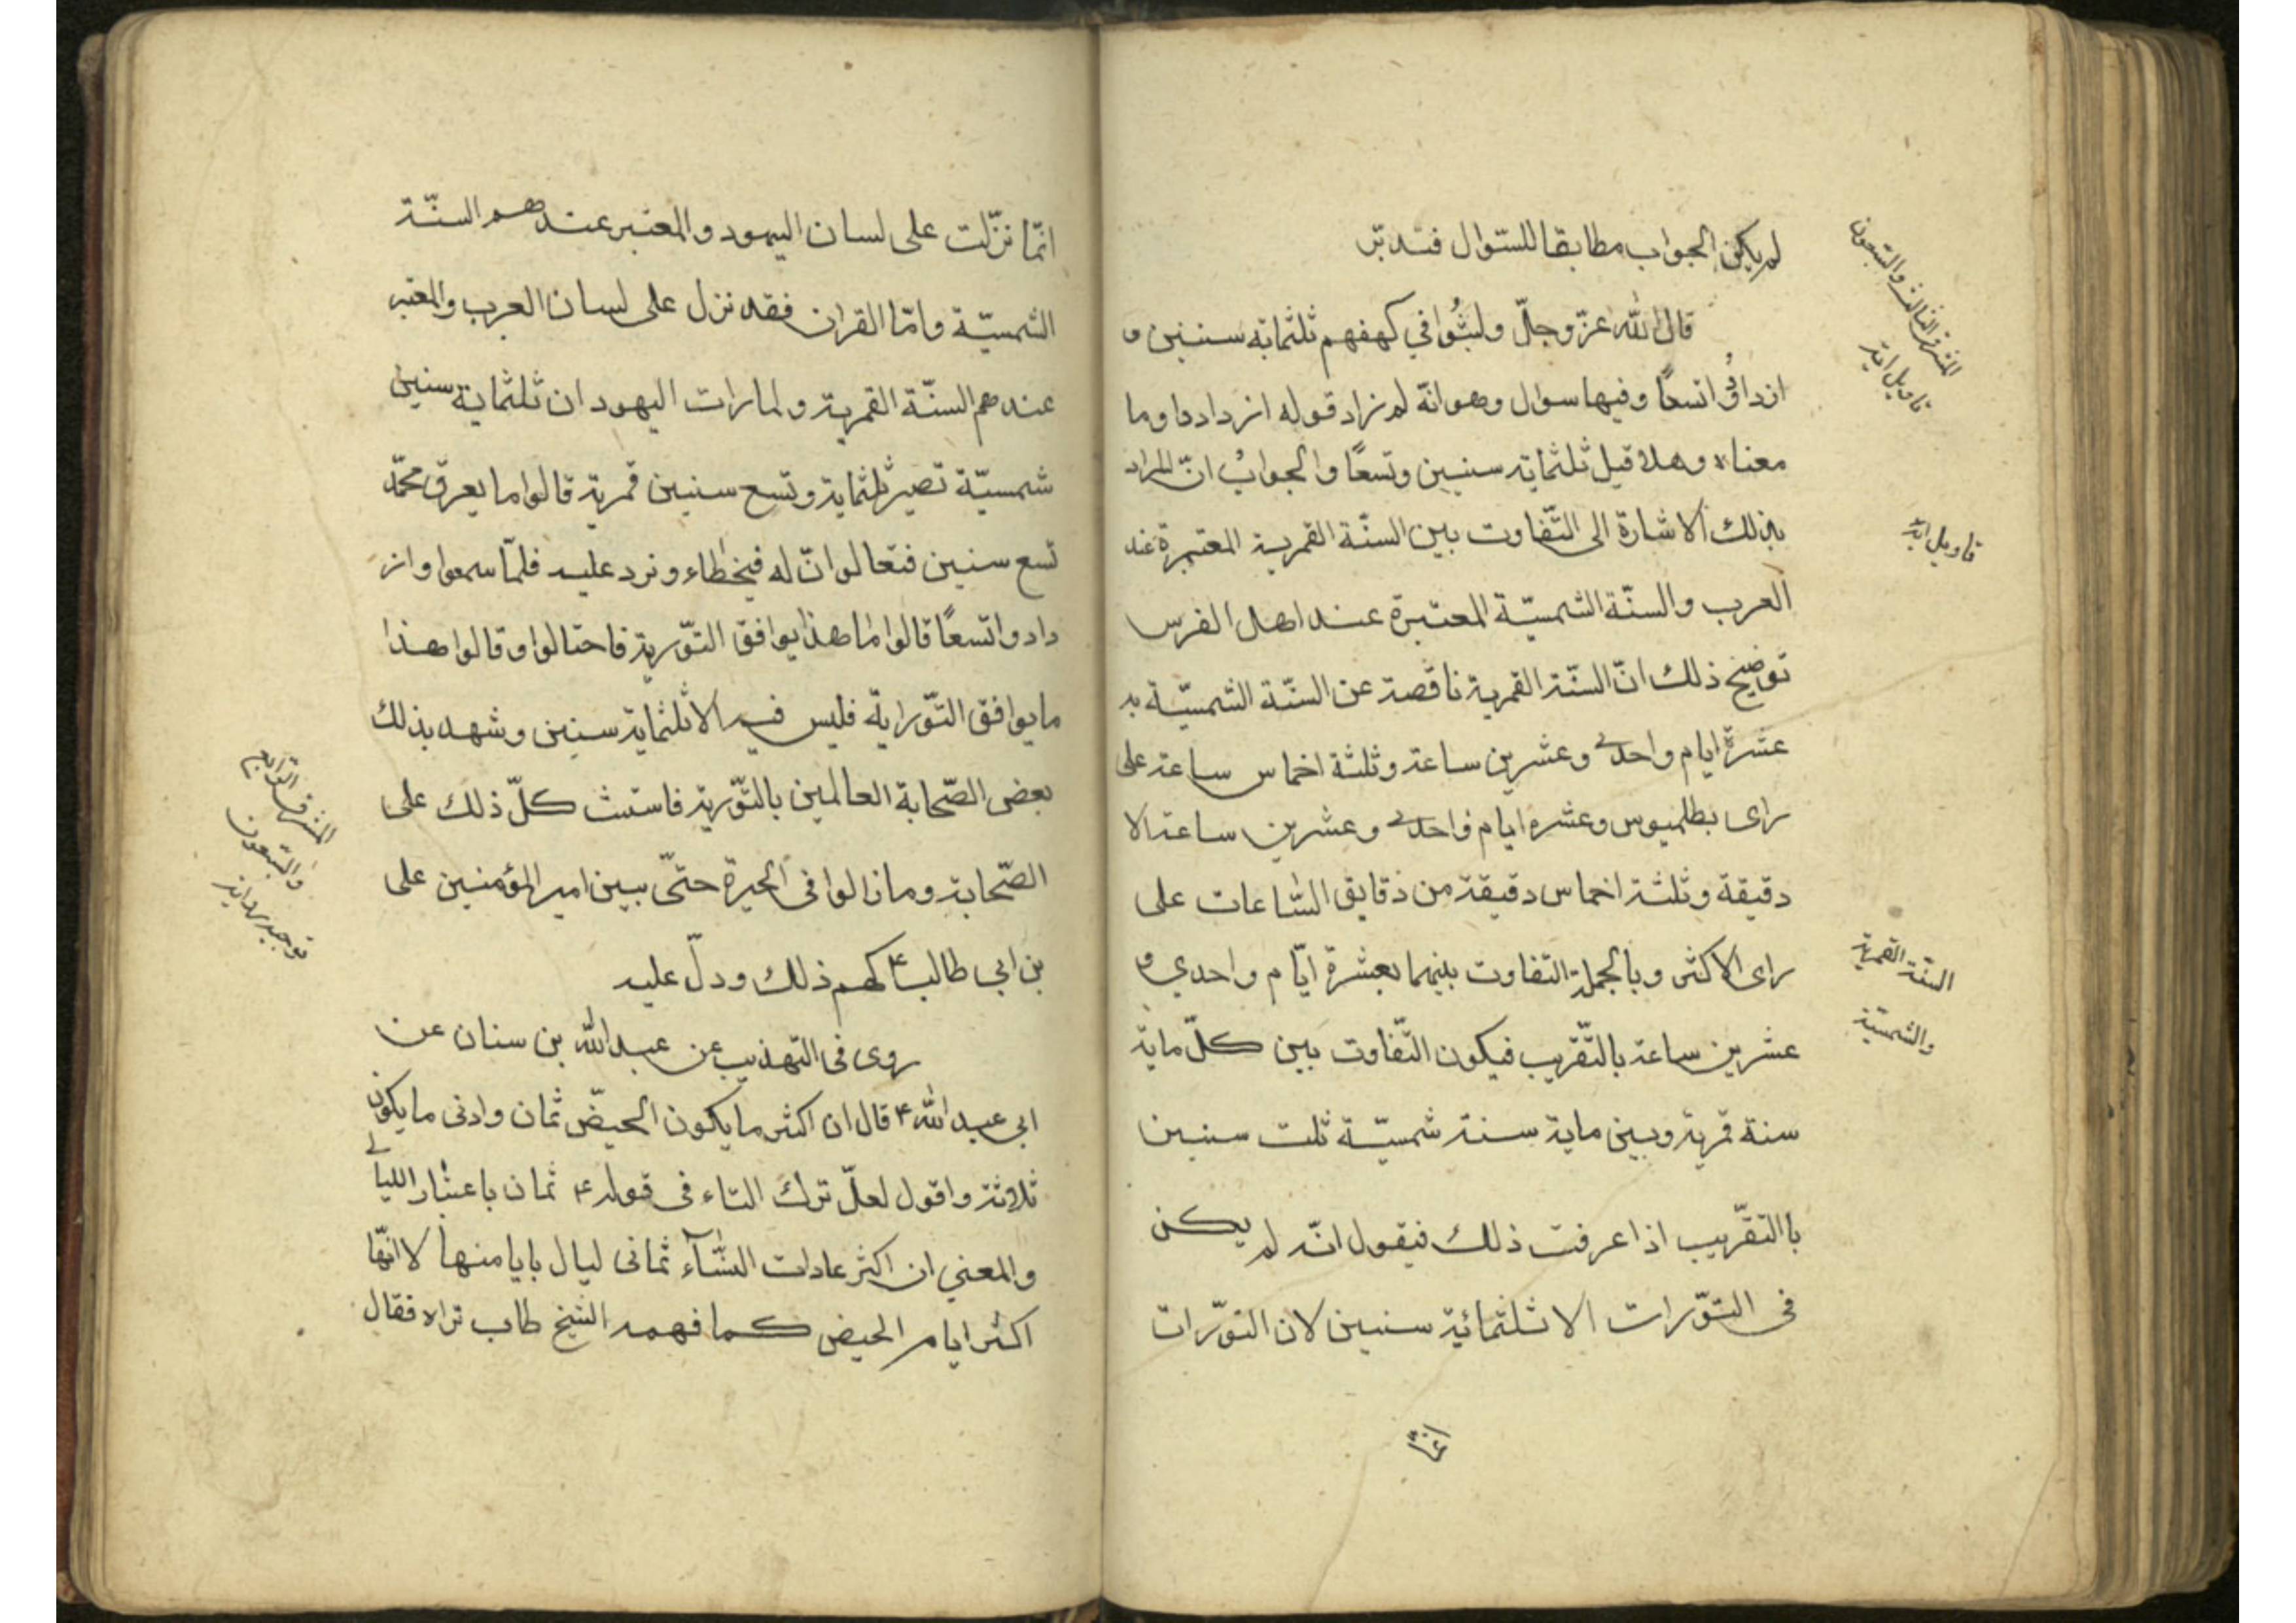 لم يكن الجواب مطابقا للسئوال فتدبّر
قال الله عزّ وجلّ ولبثُوا في كهفهم ثلثماية سنين و
ازدادُوا تسعًا وفيها سوال وهو انّه لم زاد قوله ازدادوا وما
معناه وهلا قيل ثلثماية سنين وتسعًا والجوابُ انّ المراد
بذلك الاشارة الى التّفاوت بين السنّة القمرية المعتبرة عند
العرب والسنّة الشمسيّة المعتبرة عند اهل الفرس
توضيح ذلك انّ السنّة القمرية ناقصة عن السنّة الشمسيّة بـ
عشرة ايام واحدے وعشرين ساعة وثلثة اخماس ساعة على
راى بطلميوس وعشره ايام واحدے وعشرين ساعة الا
دقيقة وثلثة اخماس دقيقة من دقايق السّاعات على
راى الاكثر وبالجملة التفاوت بينهما بعشرة ايّام واحدي و
عشرين ساعة بالتّقريب فيكون التّفاوت بين كلّ ماية
سنة قمرية وبين ماية سنة شمسيّة ثلث سنين
باالتقّريب اذا عرفت ذلك فيقول انّه لم يكن
فى التوّرات الا ثلثمائية سنين لان التورّات
المشرق الثالث والسبعون
تاويل اية
تاويل اية
السنّة القمرية
والشمسيّة
انّما نزّلت على لسان اليهود والمعتبر عندهم السنّة
الشمسيّة وامّا القران فقد نزل على لسان العرب والمعتبر
عندهم السنّة القمرية ولما رات اليهود ان ثلثماية سنين
شمسيّة تصير ثلثماية وتسع سنين قمرية قالوا ما يعرف محمّد
تسع سنين فتعالوا انّ له فيخطاء ونرد عليه فلمّا سمعوا واز
دادوا تسعًا قالوا ما هذا يوافق التوّرية فاحتالوا وقالوا هذا
ما يوافق التوّراية فليس فيه الا ثلثماية سنين وشهد بذلك
بعض الصّحابة العالمين بالتوّرية فاستث كلّ ذلك على
الصّحابة وما زالوا فى الحيرة حتىّ بيين امير المؤمنين على
بن ابي طالب ع لهم ذلك ودلّ عليه
روى فى التهذيب عن عبد الله بن سنان عن
ابي عبد الله ع قال ان اكثر ما يكون الحيضّ ثمان وادنى ما يكون
ثلاثة واقول لعلّ ترك التاء فى قوله ع ثمان باعتبار الليالے
والمعني ان اكثر عادات النسّآء ثمانى ليال بايامنها لا انهّا
اكثر ايام الحيض كما فهمه الشيخ طاب تراه فقال
المشرق الرابع
والسبعون
توجيه رواية